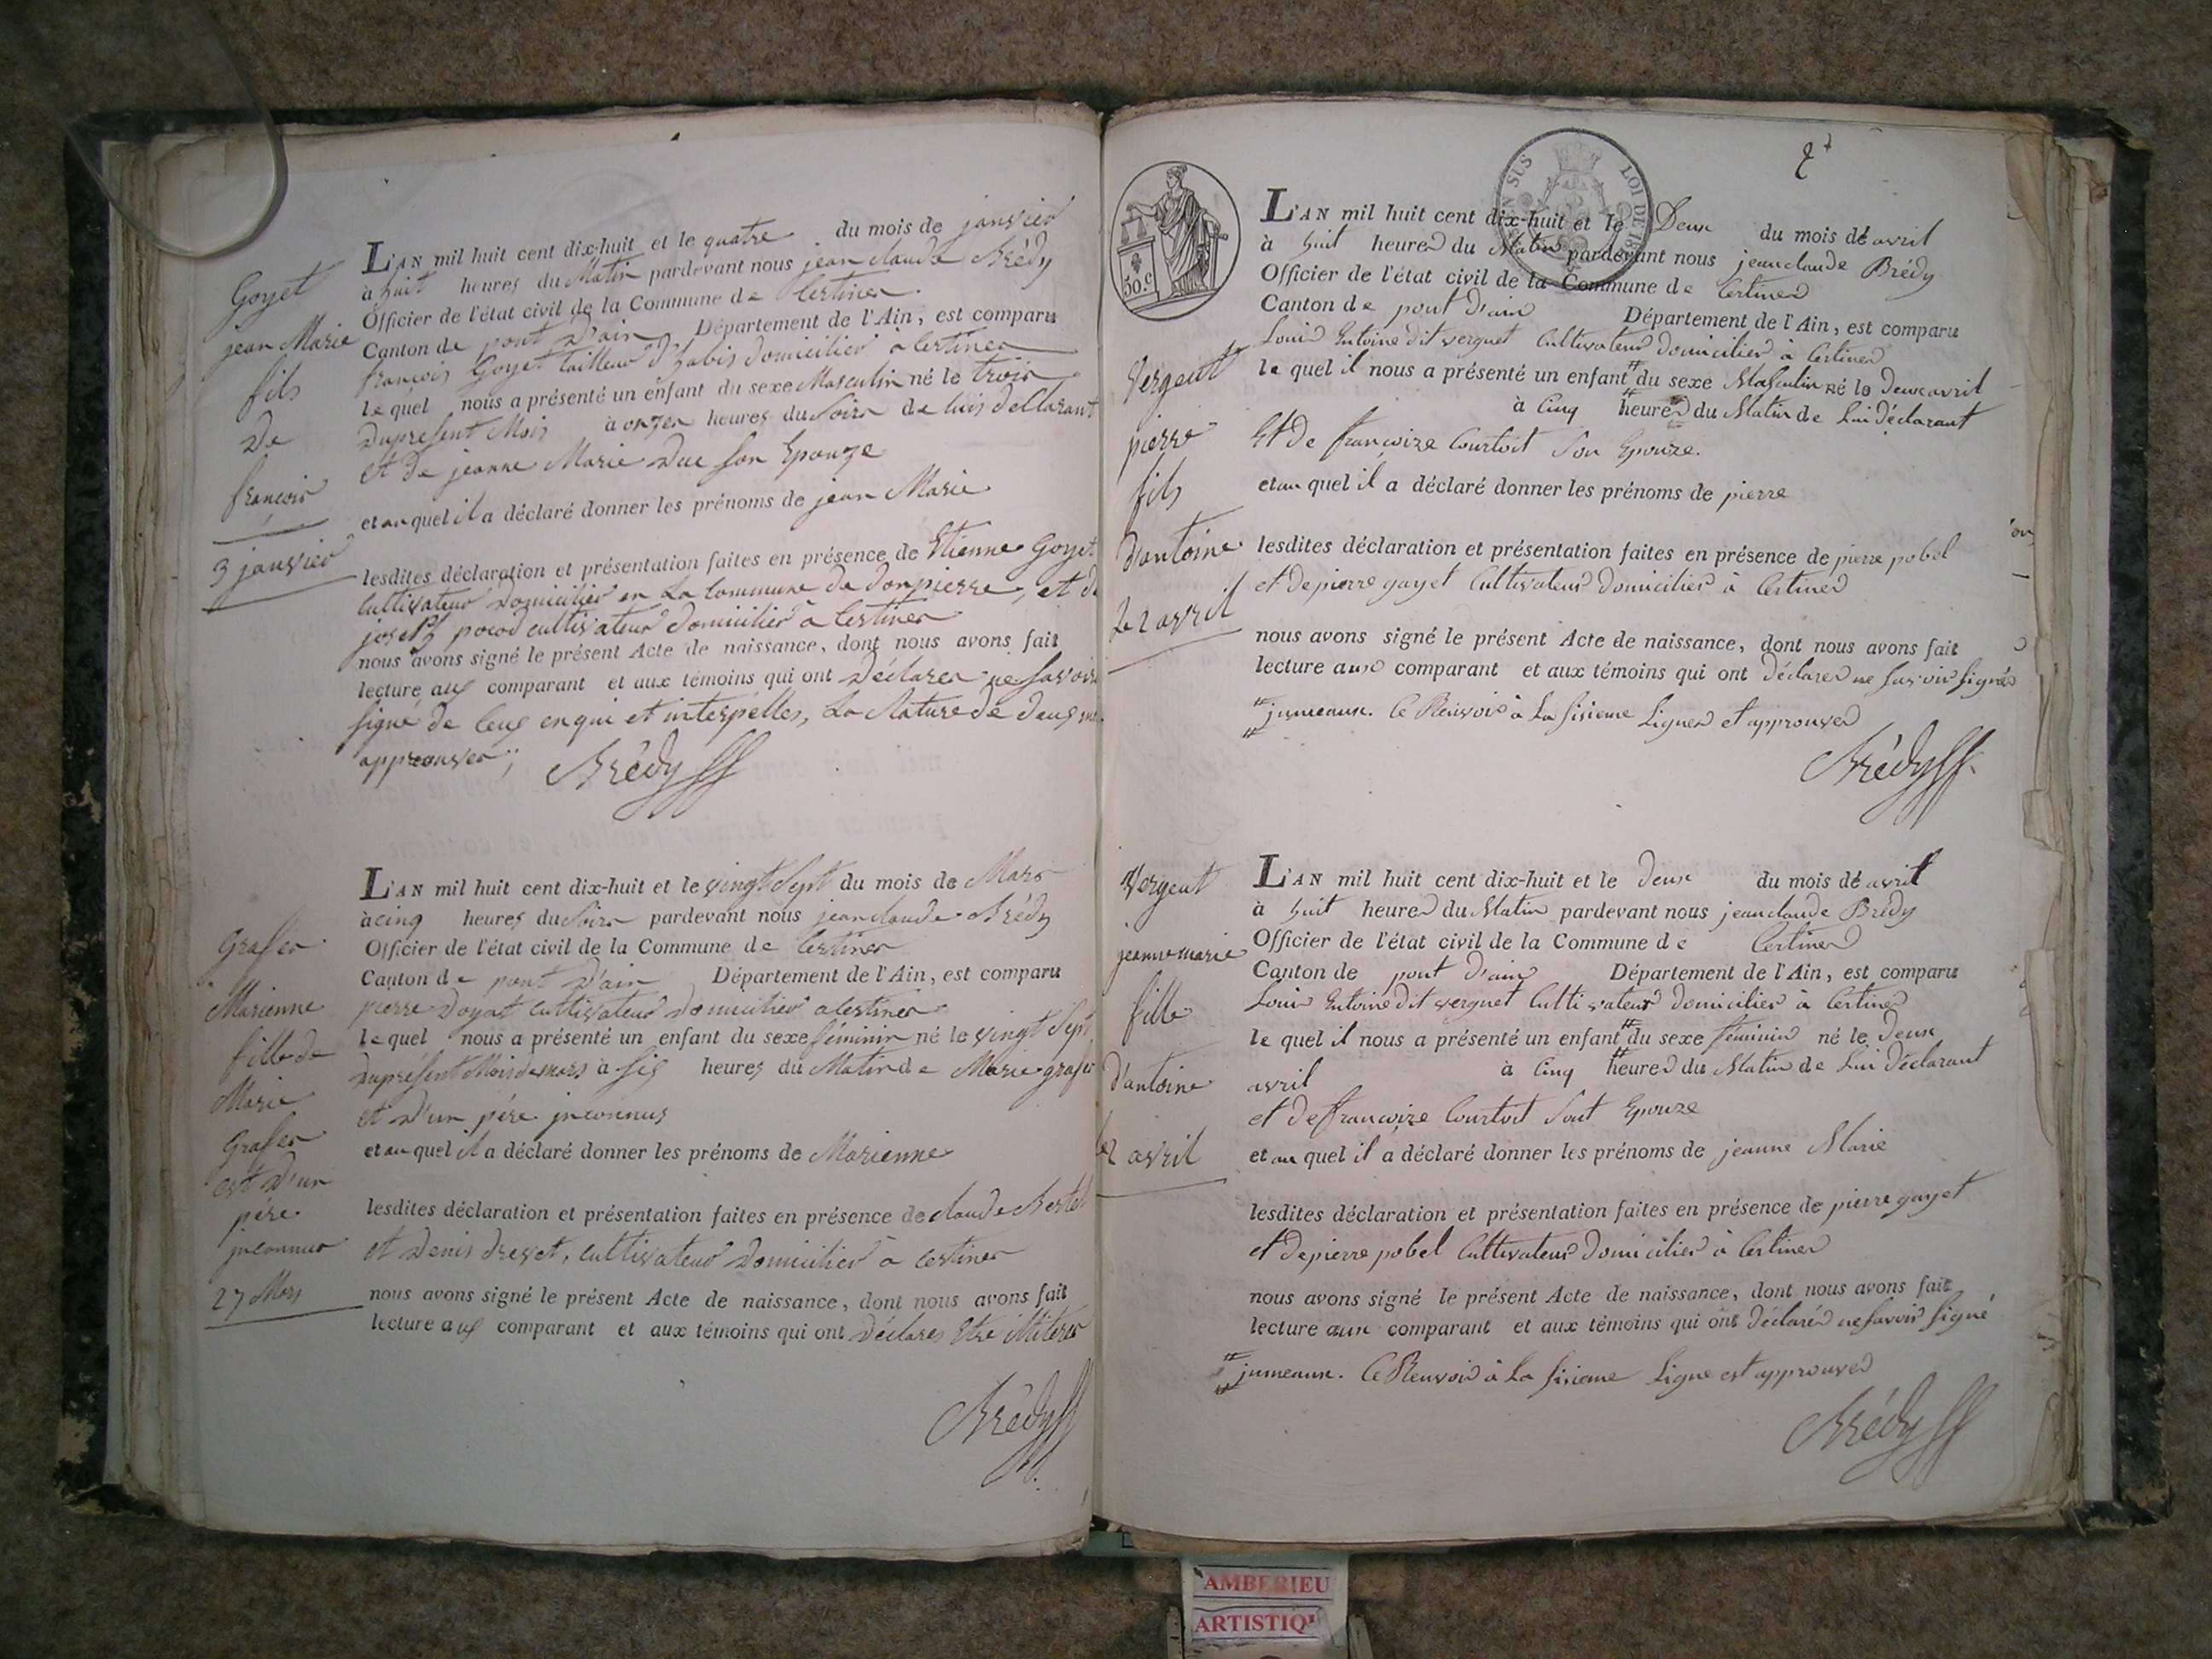 Goyet
jean Marie
fils
De
françois
3 janvier
L'AN mil huit cent dix-huit et le quatre du mois de janvier
à huit heures du Matin pardevant nous jean claude Brédy
Officier de l'état civil de la Commune de Certines
Canton de pont D'ain Département de l'Ain, est comparu
françois Goyet tailleur d'habis domicilier a Certines
lequel nous a présenté un enfant du sexe Masculin né le trois
Dupresent Mois à onzes heures du Soirs de luis dellarant
et de jeanne Marie Duc son Epouze
et au quel il a déclaré donner les prénoms de jean Marie
lesdites déclaration et présentation faites en présence de Etienne Goyet
Cultivateur Domicilier en La Commune de Donpierre, et de
joseph cultivateur domicilier à Certines
nous avons signé le présent Acte de naissance, dont nous avons fait
lecture aux comparant et aux témoins qui ont Déclarer ne Savoir
signé de Ceux enqui et interpelles, La Nature de deux
approuver ;
Brédy
Graser
Marienne
fille de
Marie
Graser
est D'un
pére
jnconnus
27 Mars
L'AN mil huit cent dix-huit et le vingt Sept du mois de Mars
à cinq heures du Soirs pardevant nous jean claude Brédy
Officier de l'état civil de la Commune de Certines
Canton de pont D'ain Département de l'Ain, est comparu
pierre Doyat cultivateur Domicilier a Certines
lequel nous a présenté un enfant du sexe féminin né le vingt Sept
Duprésent Mois de mars à six heures du Matin de Marie graser
et D'un pére jnconnus
et au quel il a déclaré donner les prénoms de Marienne
lesdites déclaration et présentation faites en présence de claude
et Denis Drevet, cultivateur Domicilier à Certines
nous avons signé le présent Acte de naissance, dont nous avons fait
lecture aux comparant et aux témoins qui ont Déclarer Etre
Brédy
2
EN SUS LOI DE
50.c
Vergeut
pierre
fils
D'antoine
Le 2 avril
L'AN mil huit cent dix-huit et le Deux du mois de avril
à huit heures du Matin pardevant nous jean claude Brédy
Officier de l'état civil de la Commune de Certines
Canton de pont D'ain Département de l'Ain, est comparu
Louis Entoine dit verguet Cultivateur Domicilier à Certines
le quel il nous a présenté un enfant # du sexe Masculin né le Deux avril
à Cinq heures du Matin de Lui Déclarant
Et De françoize Courtoit Son Epouze.
et au quel il a déclaré donner les prénoms de pierre
lesdites déclaration et présentation faites en présence de pierre pobel
et de pierre gayet Cultivateur Domicilier à Certines
nous avons signé le présent Acte de naissance, dont nous avons fait
lecture aux comparant et aux témoins qui ont Déclarer ne savoir signés
# jumeaux. Ce Renvois à La sisieme Lignes et approuver
Brédy
Vergeut
jeanne marie
fille
D'antoine
le 2 avril
L'AN mil huit cent dix-huit et le Deux du mois de avril
à huit heures du Matin pardevant nous jean claude Brédy
Officier de l'état civil de la Commune de Certines
Canton de pont D'ain Département de l'Ain, est comparu
Louis Entoine dit verguet Cultivateur Domicilier à Certines
le quel il nous a présenté un enfant # du sexe féminin né le Deux
avril à Cinq heures du Matin de Lui Déclarant
et De françoize Courtoit Sont Epouze
et au quel il a déclaré donner les prénoms de jeanne Marie
lesdites déclaration et présentation faites en présence de pierre gayet
et De pierre pobel Cultivateur Domicilier à Certines
nous avons signé le présent Acte de naissance, dont nous avons fait
lecture aux comparant et aux témoins qui ont Déclarér ne savoir signé
# jumeaux. Ce Renvois à La sisieme Ligne est approuver
Brédy
AMBERIEU
ARTISTIQ